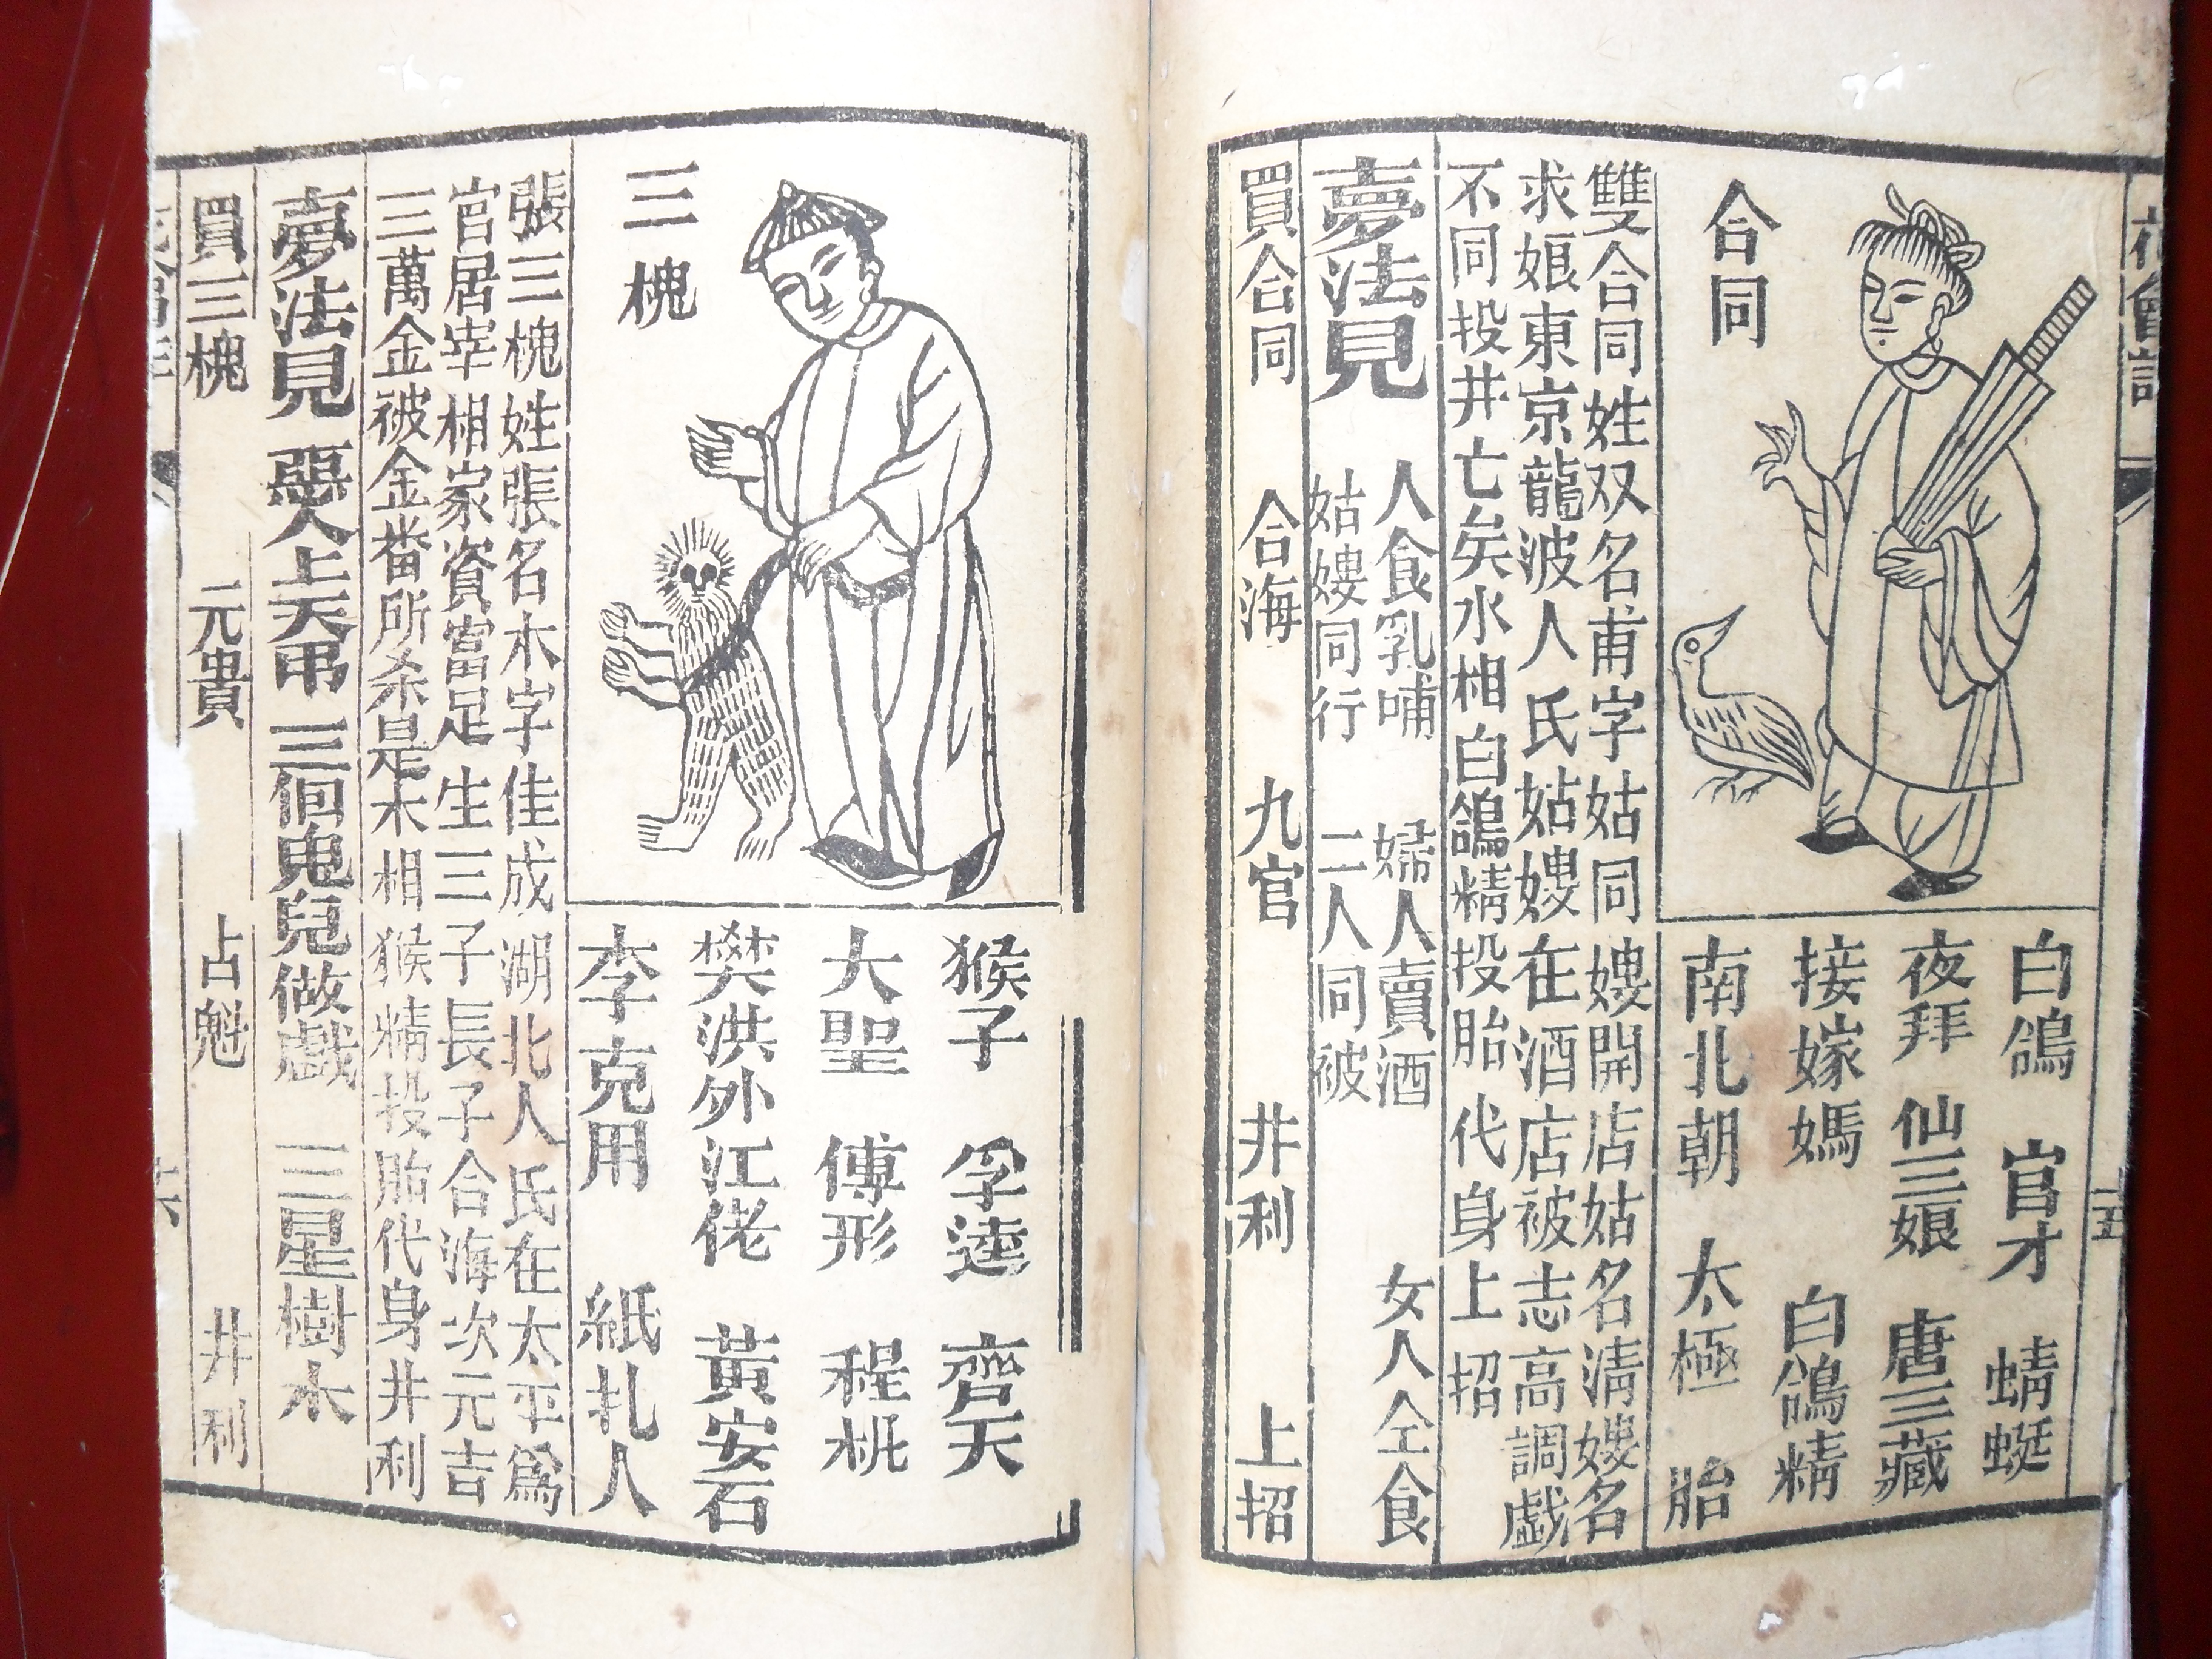 合同
白鴿 官才 蜻蜓
夜拜 仙三娘 唐三藏
接嫁媽 白鴿精
南北朝 太極 胎
雙合同姓双名甫字姑同嫂開店姑名淸嫂名
求娘東京龍波人氏姑嫂在酒店被志高調戲
不同投井亡矣水相白鴿精投胎代身上招
夢法見
人食乳哺 婦人賣酒 女人仝食
姑嫂同行 二人同被
買合同 合海 九官 井利 上招
三槐
猴子 孚達 齊天
大聖 傅形 程桃
樊洪外江佬 黃安石
李克用 紙扎人
張三槐姓張名木字佳成湖北人氏在太平爲
官居宰相家資富足生三子長子合海次元吉
三萬金被金畨所杀是木相猴精投胎代身井利
夢法見 惡人上天吊 三個鬼兒做戲 三星樹木
買三槐 元貴 占魁 井利
十五